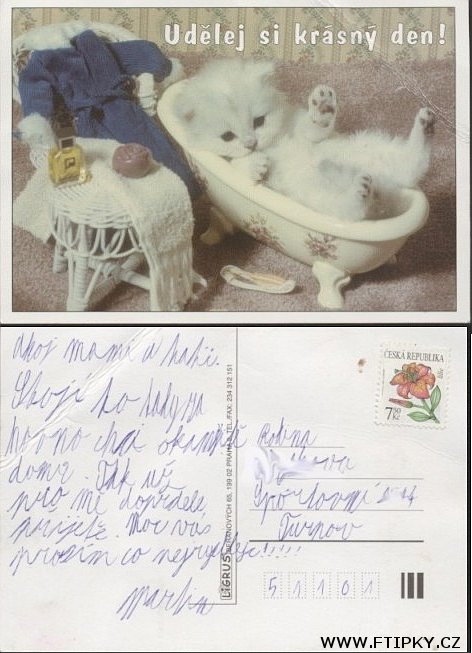 Udělej si krásný den!
Ahoj mami a tati.
Stojí to tady za
hovno chci okamžitě
domu. Tak už
pro mě doprdele
přijeďte. Moc vas
prosím co nejrychleje!!!!!
Martin
LIGRUS BERANOVÝCH 65, 199 02 PRAHA 9, TEL/FAX: 234 312 151
ČESKÁ REPUBLIKA
7,50 Kč
Rodina
Sportovní
Turnov
51101
WWW.FTIPKY.CZ